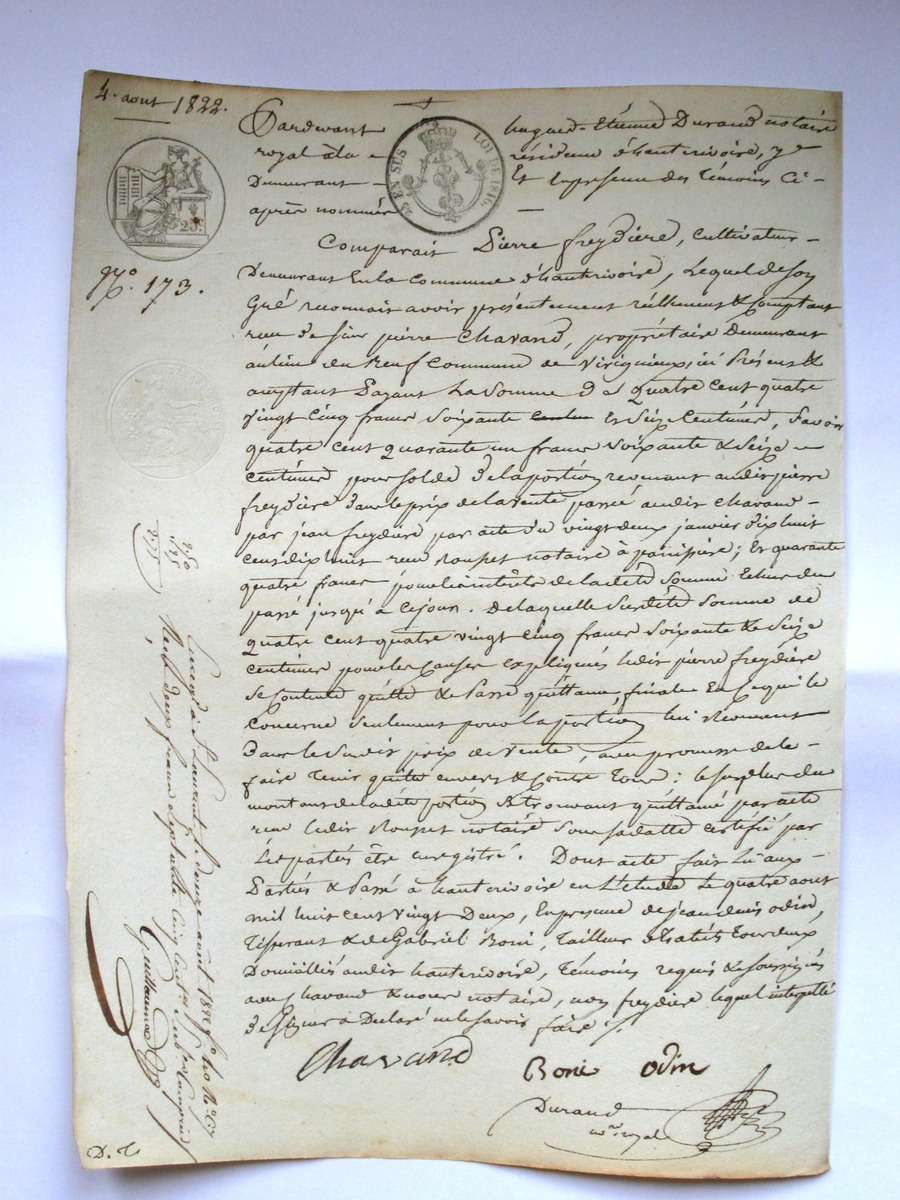 4. aout 1822.
Pardevant hugues-Etienne Durand notaire
royal à la résidence d'hauterivoire, y
Demeurant Et En présence des témoins Ci-
après nommés
25 EN SUS LOI DE 1816.
25c
N.° 173.
Comparait Pierre freydière, cultivateur
Demeurant En la Commune d'hauterivoire, Lequel de son
Gré reconnait avoir présentement réellement & Comptant
reçu de sieur pierre Chavand, propriétaire Demeurant
au lieu du Neuf Commune de Viriguieux, ici Présent &
acceptant Payant La Somme De Quatre Cent quatre
vingt Cinq francs Soixante Et Seize Centimes, Savoir
quatre cent quarante un francs Soixante & Seize
centimes pour solde de la portion revenant audit pierre
freydière dans le prix de la vente passée audit Chavand
par jean freydière par acte du vingt deux janvier dix huit
cent dix huit reçu notaire à ; Et quarante
quatre francs pour les intérêts de la dite Somme Echus du
passé jusqu'à Ce jour. De laquelle Susdite Somme de
quatre Cent quatre vingt Cinq francs Soixante & Seize
centimes pour les Causes expliquées ledit pierre freydière
Se Contente quitte & Passe quittance finale En Ce qui le
concerne Seulement pour la portion lui Revenant
Dans le Susdit prix de vente, avec promesse de le
faire tenir quitte envers & Contre Tous : le surplus du
montant de la dite portion Se trouvant quittancé par acte
reçu ledit notaire Sous sa datte certifié par
Les parties être enregistré. Dont acte fait lu aux
Parties & Passé à hauterivoire en L'etude Le quatre aout
mil huit cent vingt Deux, En présence de jean denis odin,
Tisserant & de Gabriel Boni, tailleur d'habits tous deux
Domiciliés audit hauterivoire, témoins requis & Soussignés
avec Chavand & nous notaire, non freydière lequel interpellé
de Signer a Déclaré ne le Savoir faire
Chavand
Boni odin
Durand
nre royal
2.50
.25
2.75
Enregistré à St Laurent le douze aout 1822 fo
Reçu deux francs
Guillaume
D. t.